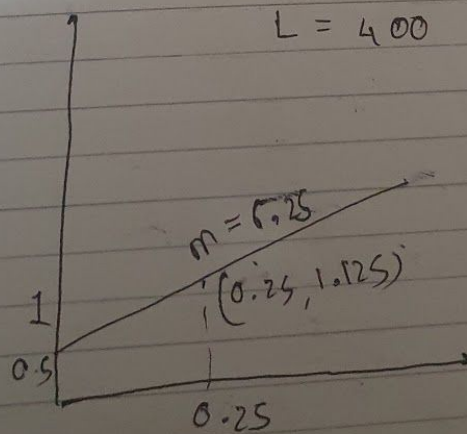 L = 400
m = 6.25
(0.25, 1.125)
1
0.5
0.25